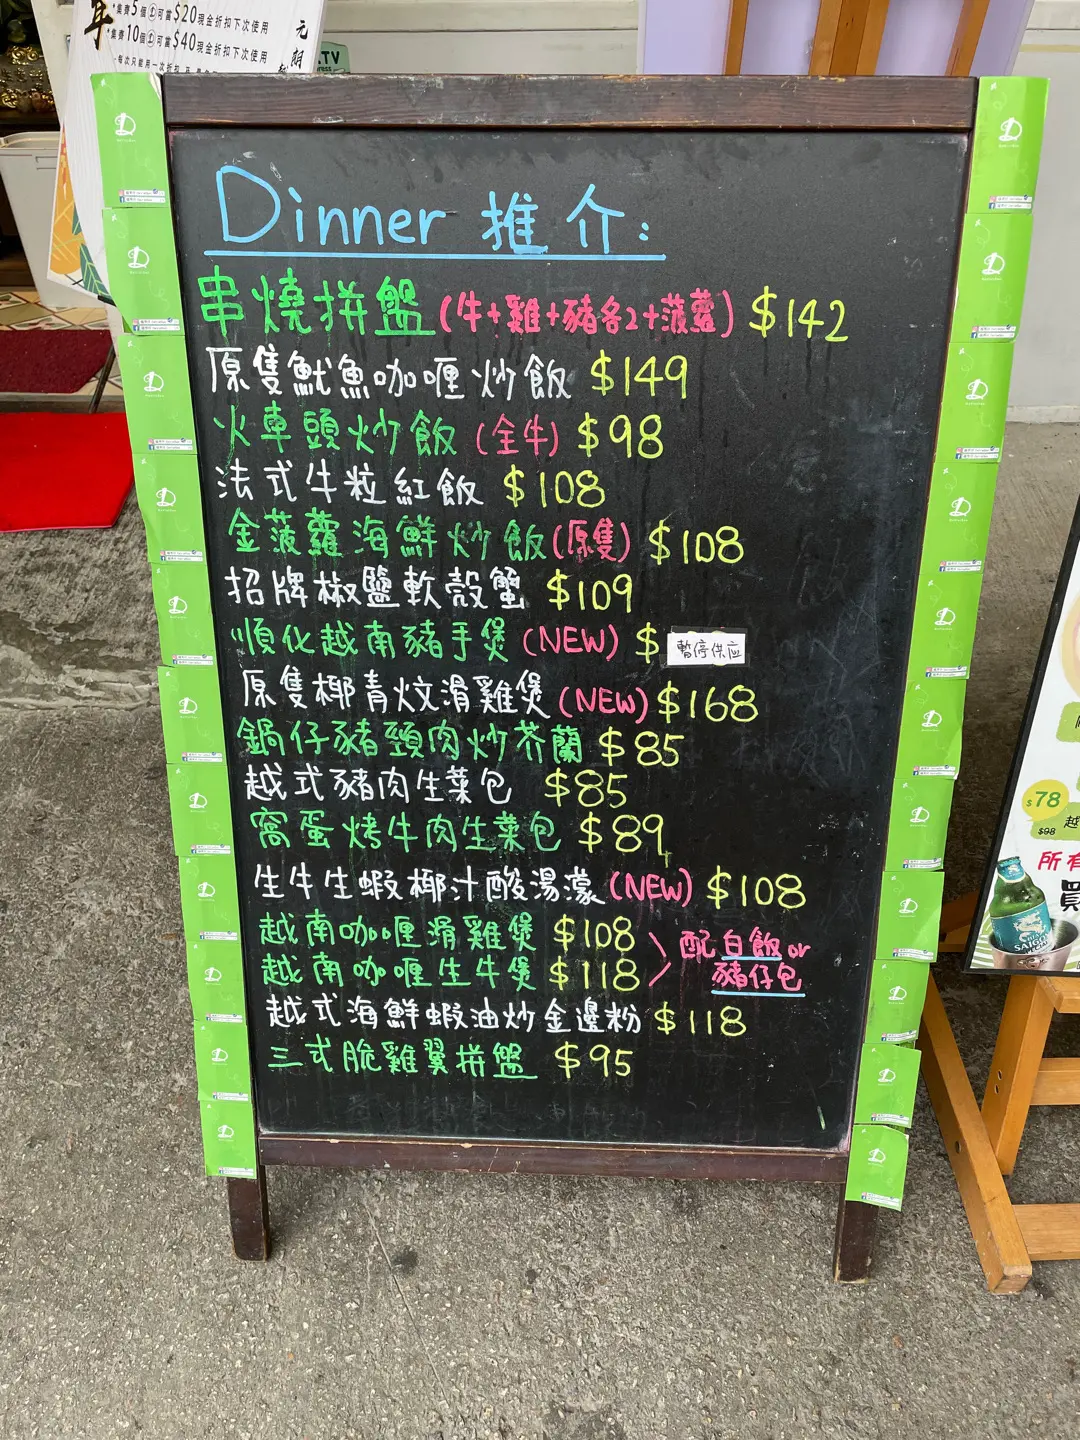 *集齊5個 可當$20現金折扣下次使用
*集齊10個 可當$40現金折扣下次使用
元朗
.TV
Dinner 推介:
串燒拼盤(牛+雞+豬各2+菠蘿) $142
原隻魷魚咖喱炒飯 $149
火車頭炒飯(全牛) $98
法式牛粒紅飯 $108
金菠蘿海鮮炒飯(原隻) $108
招牌椒鹽軟殼蟹 $109
順化越南豬手煲(NEW) $ 暫停供应
原隻椰青炆滑雞煲(NEW) $168
鍋仔豬頸肉炒芥蘭 $85
越式豬肉生菜包 $85
窩蛋烤牛肉生菜包 $89
生牛生蝦椰汁酸湯濠(NEW) $108
越南咖喱滑雞煲 $108
越南咖喱生牛煲 $118
配白飯or
豬仔包
越式海鮮蝦油炒金邊粉 $118
三式脆雞翼拼盤 $95
$78
$98
越
所有
買
SAIGON